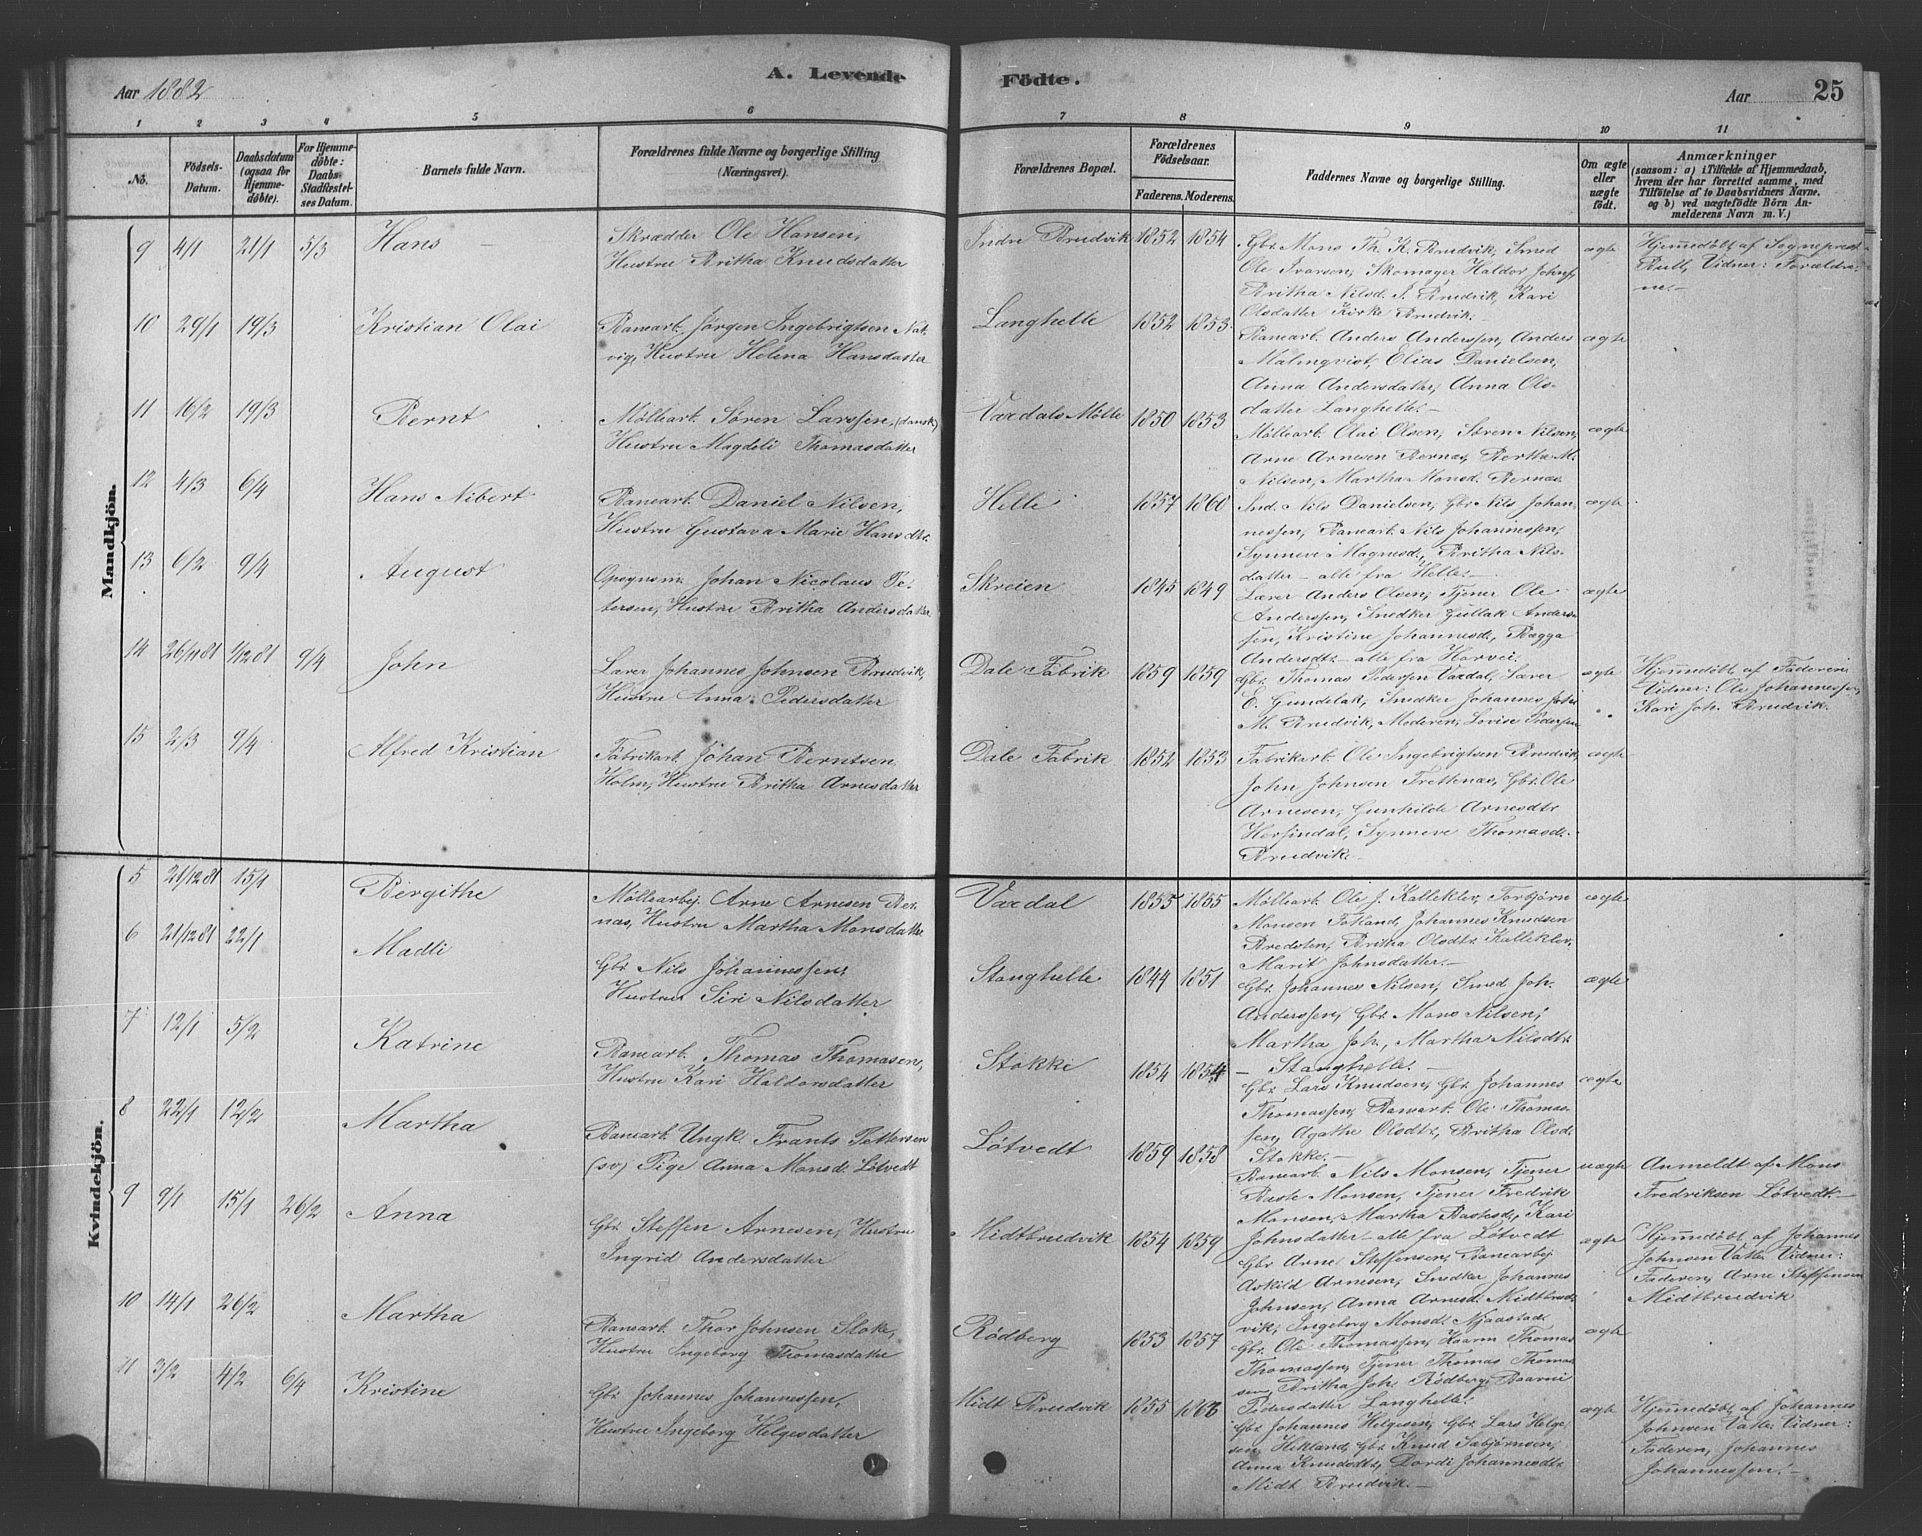 Aar 1882
A. Levende Födte.
Aar 25
1 2 3 4 5 6 7 8 9 10 11
No.
Födsels-Datum.
Daabsdatum (ogsaa for Hjemmedöbte).
For Hjemmedöbte: Daabs-Stadfestelses Datum.
Barnets fulde Navn.
Forældrenes fulde Navne og borgerlige Stilling (Næringsvei).
Forældrenes Bopæl.
Forældrenes Födselsaar.
Faderens. Moderens.
Faddernes Navne og borgerlige Stilling.
Om ægte eller uægte födt.
Anmærkninger
(saasom: a) i Tilfælde af Hjemmedaab,
hvem der har forrettet samme, med
Tilföielse af to Daabsvidners Navne,
og b) ved uægtefödte Börn An-
melderens Navn m. V.)
Mandkjön.
9 4/1 21/1 5/3 Hans –
Skrædder Ole Hansen,
Hustru Britha Knudsdatter
Indre Brudvik 1852 1854
Gbr. Mons Th. K. Brudvik, Smed
Ole Ivarsen, Skomager Haldor Johns,
Britha Nilsd. I. Brudvik, Kari
Olsdatter Kirke Brudvik.–
ægte
Hjemmedøbt af Sogneprest
Rull, Vidner: Forældre-
ne.–
10 29/1 19/3 Kristian Olai
Banearb. Jørgen Ingebrigtsen Nat-
vig, Hustru Helena Hansdatter
Langhelle 1852 1853.
Banearb. Anders Anderssen, Anders
Malmqvist, Elias Danielsen,
Anna Andersdatter, Anna Ols-
datter Langhelle.–
ægte
11 16/2 19/3 Bernt
Møllearb. Søren Larssen, (dansk)
Hustru Magdeli Thomasdatter
Vaxdals Mølle 1850 1853
Møllearb. Olai Olsen, Søren Nilsen,
Arne Arnesen Bernæs, Bertha M.
Nilsen, Martha Monsd. Bernæs
ægte
12 4/3 6/4 Hans Nibert
Banearb. Daniel Nilsen,
Hustru Gustava Marie Hansdtr.
Helle 1857 1860
Ind. Nils Danielsen, Gbr. Nils Johan-
nessen, Banearb. Nils Johannessen,
Synneve Magnesd., Britha Nils-
datter – alle fra Helle.–
ægte
13 6/2 9/4 August
Opsynsm. Johan Nicolaus Pe-
tersen, Hustru Britha Andersdatter
Skreien 1845 1849
Lærer Anders Olsen, Tjener Ole
Anderssen, Snedker Gullak Anders-
sen, Kristine Johannesd., Bagga
Andersdtr. – alle fra Horvei.
ægte
14 26/11 81 1/12 81 9/4 John
Lærer Johannes Johnsen Brudvik,
Hustru Anna Pedersdatter
Dale Fabrik 1859 1859
Gbr. Thomas Pedersen Vaxdal, Lærer
E. Gundelak, Snedker Johannes Johs
M. Brudvik, Moderen, Lovise Pedersen
ægte
Hjemmedøbt af Faderen:
Vidner: Ole Johannessen,
Kari Joh. Brudvik.
15 2/3 9/4 Alfred Kristian
Fabrikarb. Johan Berntsen
Holm, Hustru Britha Arnesdatter
Dale Fabrik 1852 1853
Fabrikarb. Ole Ingebrigtsen Brudvik,
John Johnsen Trettenæs, Gbr. Ole
Arnesen, Gunhilde Arnesdtr.
Hersindal, Synneve Thomasd.
Brudvik.–
ægte
Kvindekjön.
5 21/12 81 15/1 Bergithe
Møllearbej. Arne Arnesen Ber-
næs, Hustru Martha Monsdatter
Vaxdal 1855 1855
Møllearb. Ole J. Kalleklev, Torbjørn
Monsen Fosland, Johannes Knudsen
Bredsten, Britha Olsdtr. Kalleklev,
Marit Johnsdatter.–
ægte
6 21/12 81 22/1 Madli
Gbr. Nils Johannessen,
Hustru Siri Nilsdatter
Stanghelle 1844 1851
Gbr. Johannes Nilsen, Smed Joh.
Anderssen, Gbr. Mons Nilsen,
Martha Joh., Martha Nilsdtr.
– Stanghelle.–
ægte
7 12/1 5/2 Katrine
Banearb. Thomas Thomasen,
Hustru Kari Haldorsdatter
Stokke 1854 1854
Gbr. Lars Knudsen, Gbr. Johannes
Thomassen, Banearb. Ole Thomas-
sen, Agathe Olsdtr., Britha Olsd.
Stokke.–
ægte
8 22/1 12/2 Martha
Banearb. Ungk. Frants Pettersen
(sv) Pige Anna Monsd. Løtvedt
Løtvedt 1859 1858
Banearb. Nils Monsen, Tjener
Baste Monsen, Tjener Fredrik
Monsen, Martha Bastesd., Kari
Johnsdatter – alle fra Løtvedt
uægte
Anmeldt af Mons
Fredriksen Løtvedt.–
9 9/1 15/1 26/2 Anna
Gbr. Steffen Arnesen, Hustru
Ingrid Andersdatter
Midtbrudvik 1854 1859
Gbr. Arne Steffensen, Banearbej.
Askild Arnesen, Snedker Johannes
Johnsen, Anna Arnesd. Midtbrud-
vik, Ingeborg Monsd. Njaastad.
ægte
Hjemmedøbt af Johannes
Johnsen Vatle. Vidner:
Faderen, Arne Steffensen
Midtbrudvik
10 14/1 26/2 Martha
Banearb. Thor Johnsen Stoke,
Hustru Ingeborg Thomasdatter
Rødberg 1853 1857
Gbr. Ole Thomassen, Thomas
Thomassen, Tjener Thomas Thomas-
sen, Britha Joh. Rødberg,
Pedersdatter Langhelle.
ægte
11 3/2 4/2 6/4 Kristine
Gbr. Johannes Johannessen,
Hustru Ingeborg Helgesdatter
Midt Brudvik 1855
Gbr. Johannes Helgesen, Gbr. Lars Helge-
sen, Hikland, Gbr. Knud Sabjørnsen,
Anna Knudsdtr., Dordi Johannesdtr.
Midt Brudvik.–
ægte
Hjemmedøbt af Johannes
Johnsen Vatle. Vidner:
Faderen, Johannes
Johannessen.–